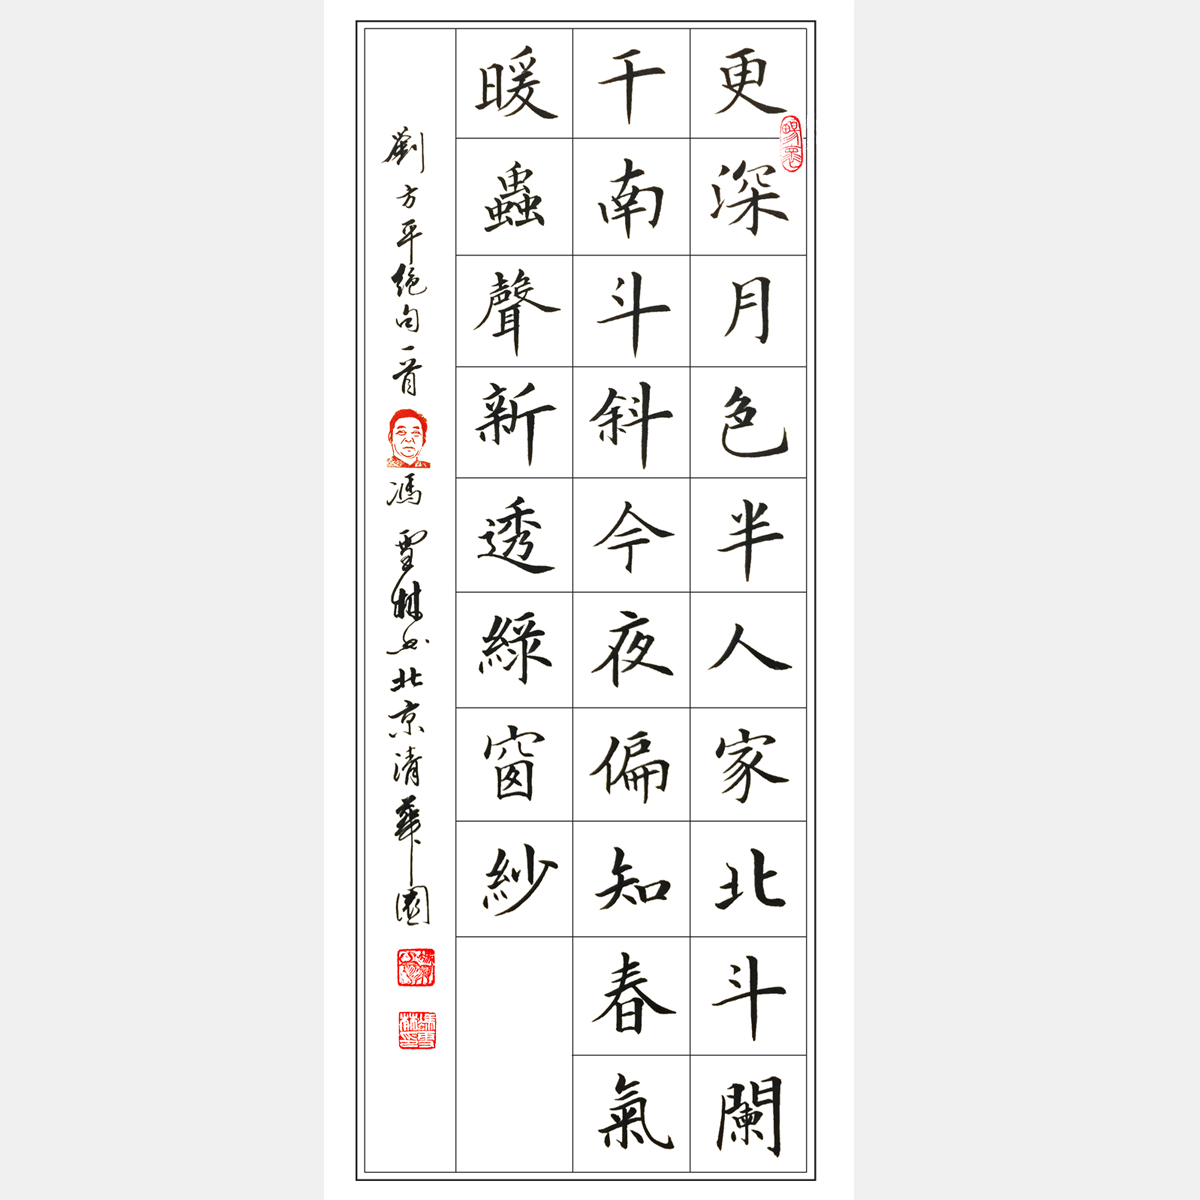 更深月色半人家北斗闌
干南斗斜今夜偏知春氣
暖蟲聲新透綠窗紗
劉方平绝句一首
馮雪林书北京清華園